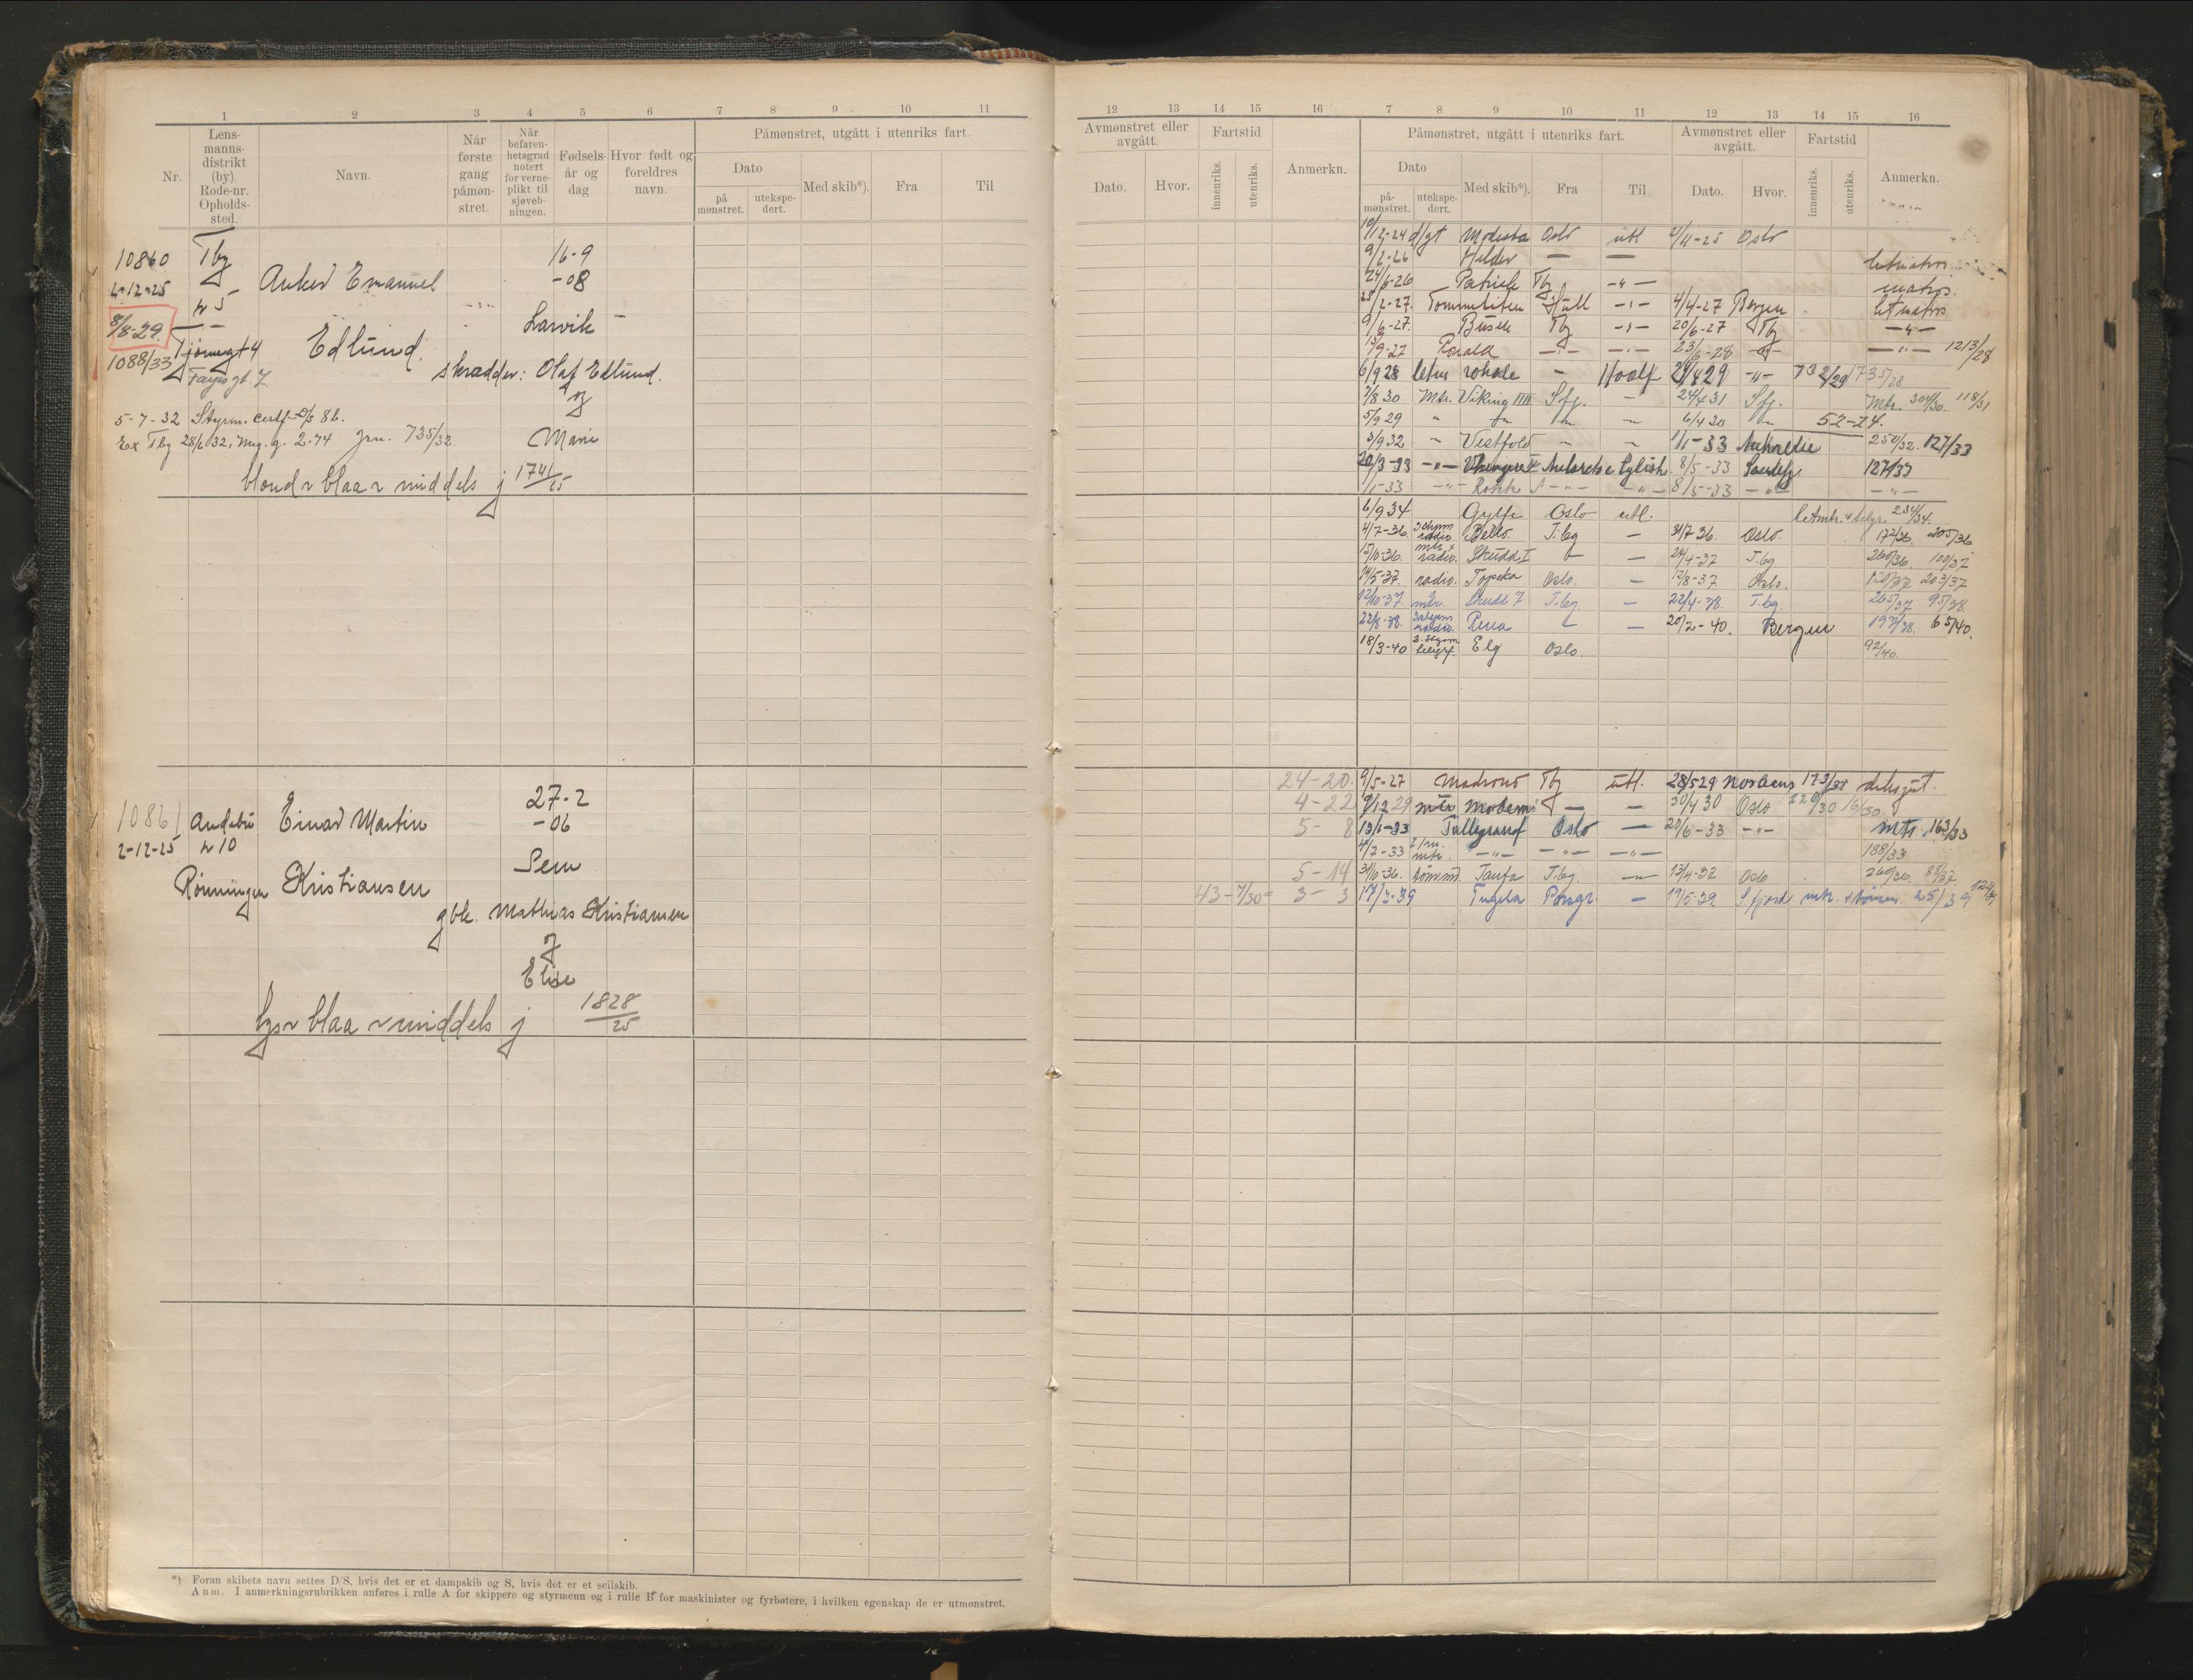 1 2 3 4 5 6 7 8 9 10 11
Nr. Lens-manns-distrikt (by). Rode-nr. Opholds-sted. Navn. Når første gang påmøn-stret. Når befaren-hetsgrad notert for verne-plikt til sjøveb-ningen. Fødsels-år og dag. Hvor født og foreldres navn.
Påmønstret, utgått i utenriks fart.
Dato Med skib*). Fra Til
på mønstret. utekspe-dert.
10860 Tbg 16-9
2-12-25 Anker Emanuel -08
r 5
8/8-29. Larvik
1088/33 Tjømegt 4 Edlund.
skrædder: Olaf Edlund.
Farjegt. 7
og
5-7-32 Styrm. certf.
Ex Tbg 28/6 32, 2.74 Jrn. 735/32.
Marie
blond r blaa r middels j 1741/25
10861 Andebu Einar Martin 27-2
2-12-25 r 10 -06
Sem
Rønningen Kristiansen
gbk. Mathias Kristiansen
og
Elise
lys r blaa r middels j 1828/25
*) Foran skibets navn settes D/S, hvis det er et dampskib og S, hvis det er et seilskib.
Anm. I anmerkningsrubrikken anføres i rulle A for skippere og styrmenn og i rulle B for maskinister og fyrbøtere, i hvilken egenskap de er utmønstret.
12 13 14 15 16 7 8 9 10 11 12 13 14 15 16
Avmønstret eller avgått. Fartstid Anmerkn. Påmønstret, utgått i utenriks fart. Avmønstret eller avgått. Fartstid Anmerkn.
Dato. Hvor. innenriks. utenriks. Dato Med skib*). Fra Til Dato. Hvor. innenriks. utenriks.
på-mønstret. utekspe-dert.
10/12-24 d/gt Modesta Oslo utl. 21/11-25 Oslo
9/2-26 Hilder — — letmatros
24/6-26 Patrick Tbg -"- matros.
25/2-27. Tommeliten Hull -"- 4/4-27 Bergen letmatros
9/6-27. Busen Tbg -"- 20/6-27 Tbg -"-
13/9-27 Ronald -"- -"- 23/6-28 -"- -"- 1213/28
6/9 28 - 29 -"- 732/29 735/28
7/8 30 Mtr. Viking Sfj. - 24/4 31 Sfj. Mtr. 304/30. 118/31
5/9 29 " 6/4 30 52-24.
3/9 32 " Vestfold - - 1/1-33 250/32. 127/33
20/3-33 -"- 8/5-33 Sandefj. 127/33
1/1-33 -"- -"- -"- 8/5-33 -"- -"-
6/9 34 Gylfe Oslo utl. 234/34.
4/7-36. 3 styrm radio. Bello. T.bg - 31/7 36. Oslo. 172/36. 205/36
15/10-36. mtr + radio. Skudd I - 24/4-37 T.bg 260/36. 100/37
14/5-37. radio. Topeka Oslo. - 12/8-37 Oslo. 120/37 203/37
12/10-37. mtr. Skudd 7 T.bg - 22/4-38. T.bg. 265/37 95/38
22/8-38. 3 styrm radio. Rena - 20/2-40. Bergen 197/38. 65/40.
18/3-40 3. styrm telegr. Elg Oslo. 92/40.
24-20. 9/5-27 Madrono Tbg utl. 28/5 29 173/27 dæksgut.
4-22 9/12 29 mtr Moderni — - 30/4 30 Oslo 220/30 16/30
5- 8 13/1-33 Oslo — 20/6-33 -"- mtr. 163/33
4/7-33 mtr. -"- -"- -"- 188/33
5-14 31/10-36. tømmd. Taufa T.bg. - 13/4-37 Oslo 260/36. 88/37
43-7/30= 3- 3 17/2-39 Tugela Porsgr. - 19/5-39. S fjord mtr. + tømm. 25/39 122/39